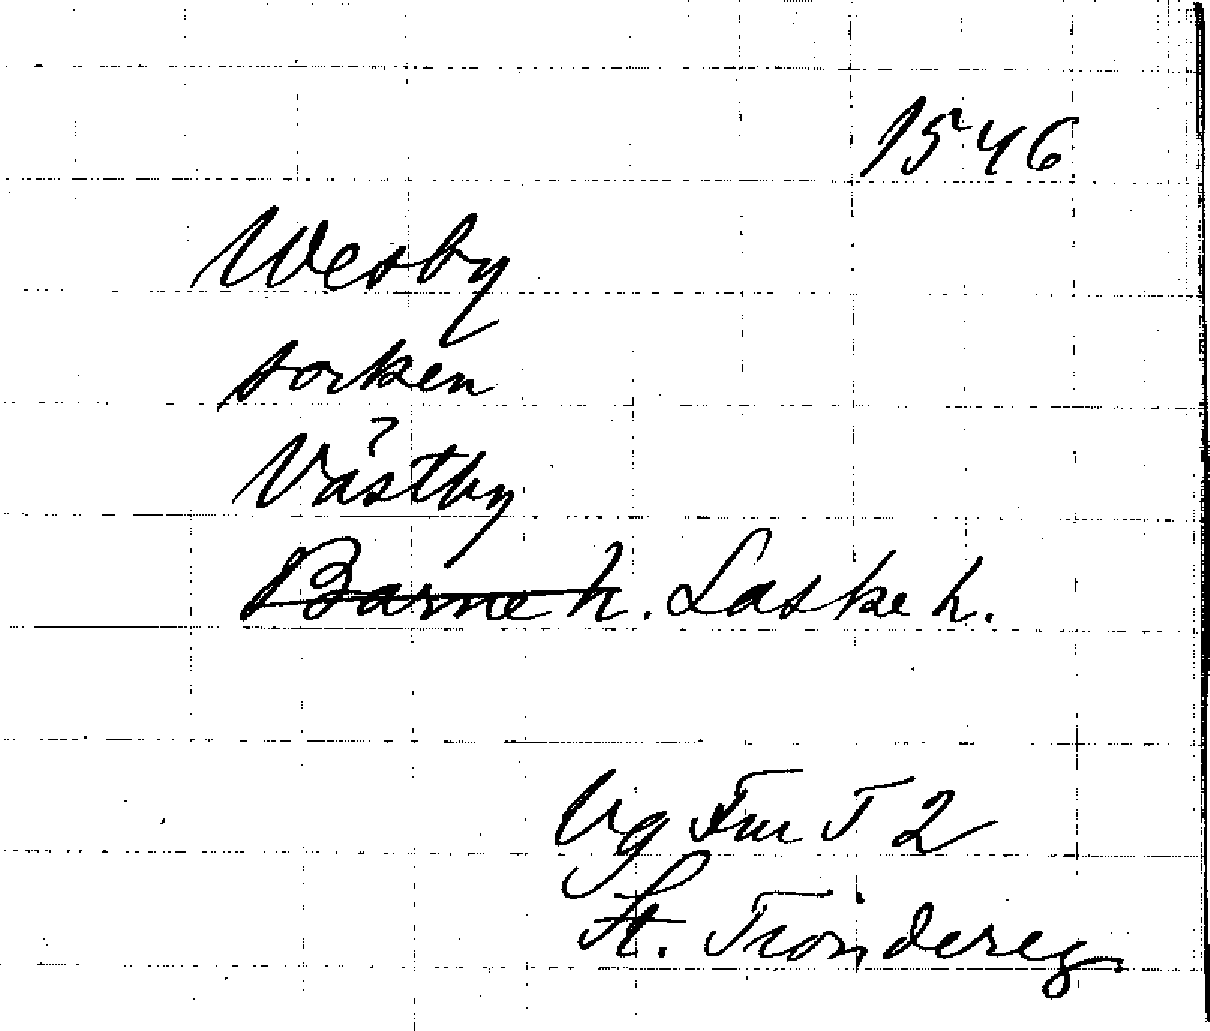 1546
Wesby
socken
Västby
Barne h. Laske h.
Vg Fur T 2
St. Tiondereg